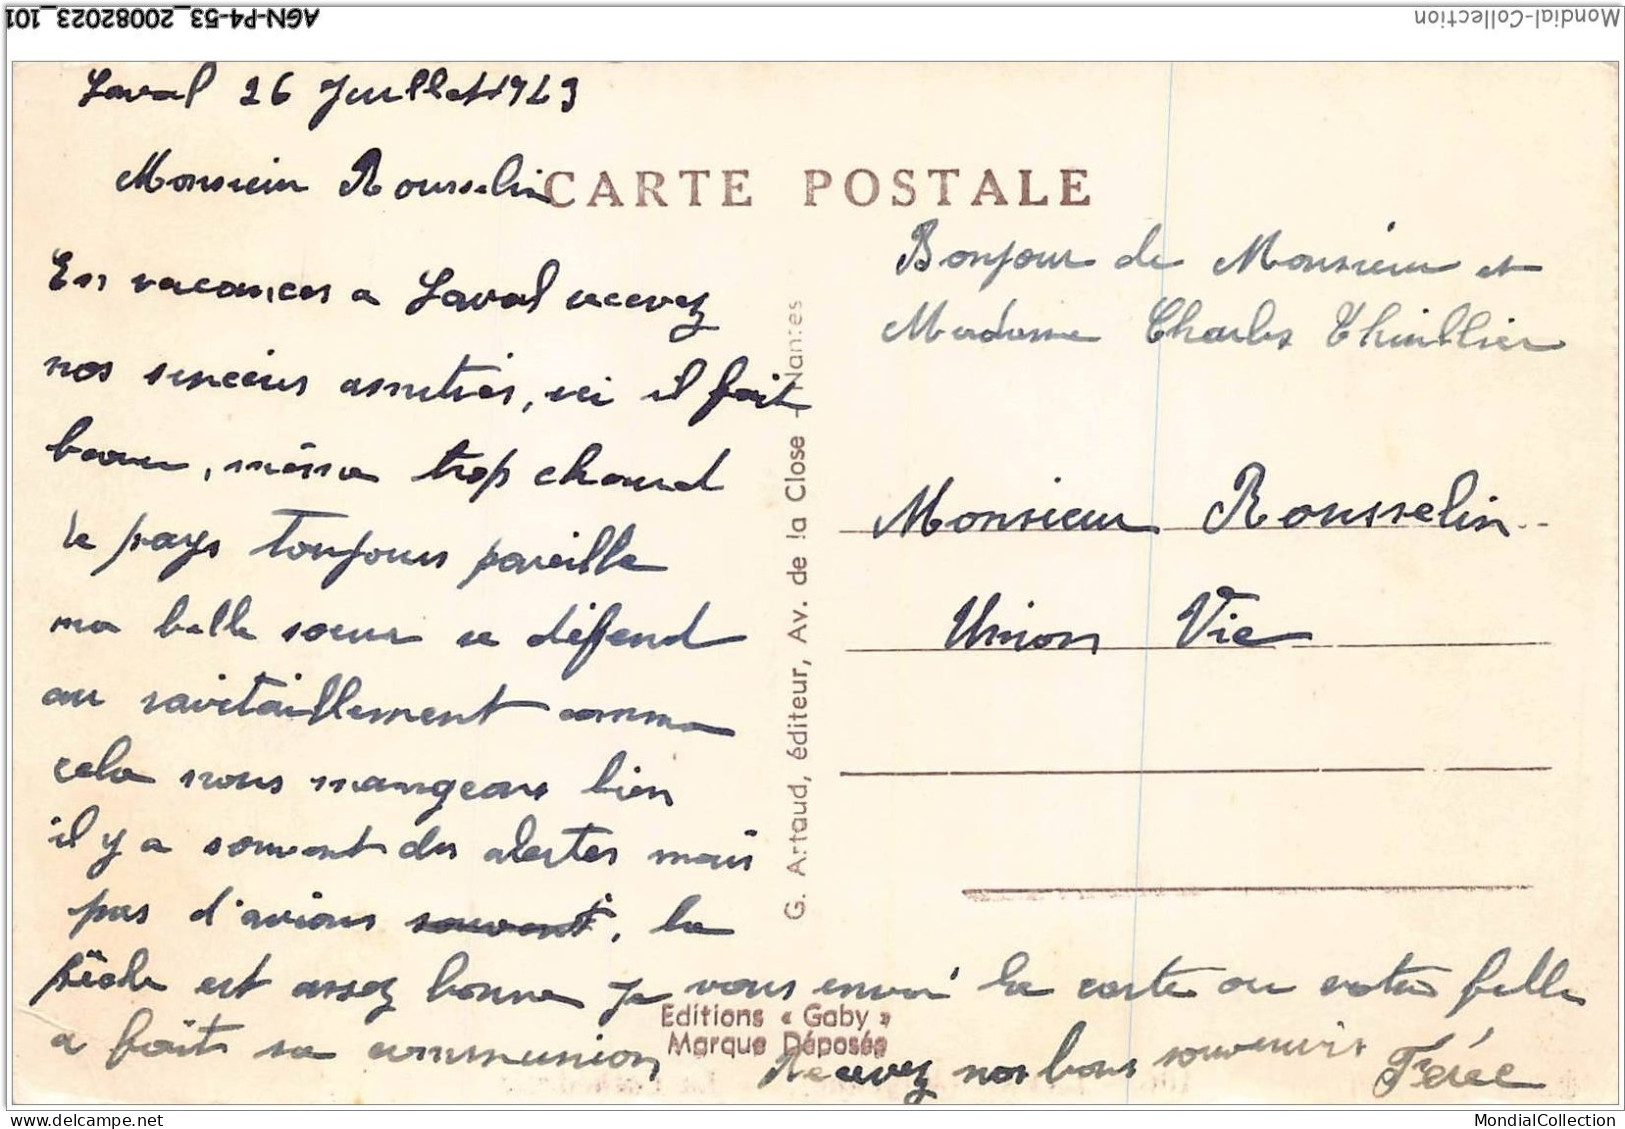 AGN-P4-53_20082023_101
Mondial-Collection
Laval 26 Juillet 1943
Monsieur Rousselin
CARTE POSTALE
En vacances a Laval recevez
nos sincères amitiés, ici il fait
beau, même trop chaud
le pays toujours pareille
ma belle soeur se déffend
au ravitaillement comme
cela nous mangeons bien
il y a souvent des alertes mais
pas d'avions souvent, la
pêche est assez bonne Je vous envoi la carte ou votre fille
a fait sa communion Recevez nos bons souvenirs
Bonjour de Monsieur et
Madame Charles Thuillier
Monsieur Rousselin
Union Vie
G. Artaud, éditeur, Av. de la Close - Nantes
Editions « Gaby »
Marque Déposée
MondialCollection